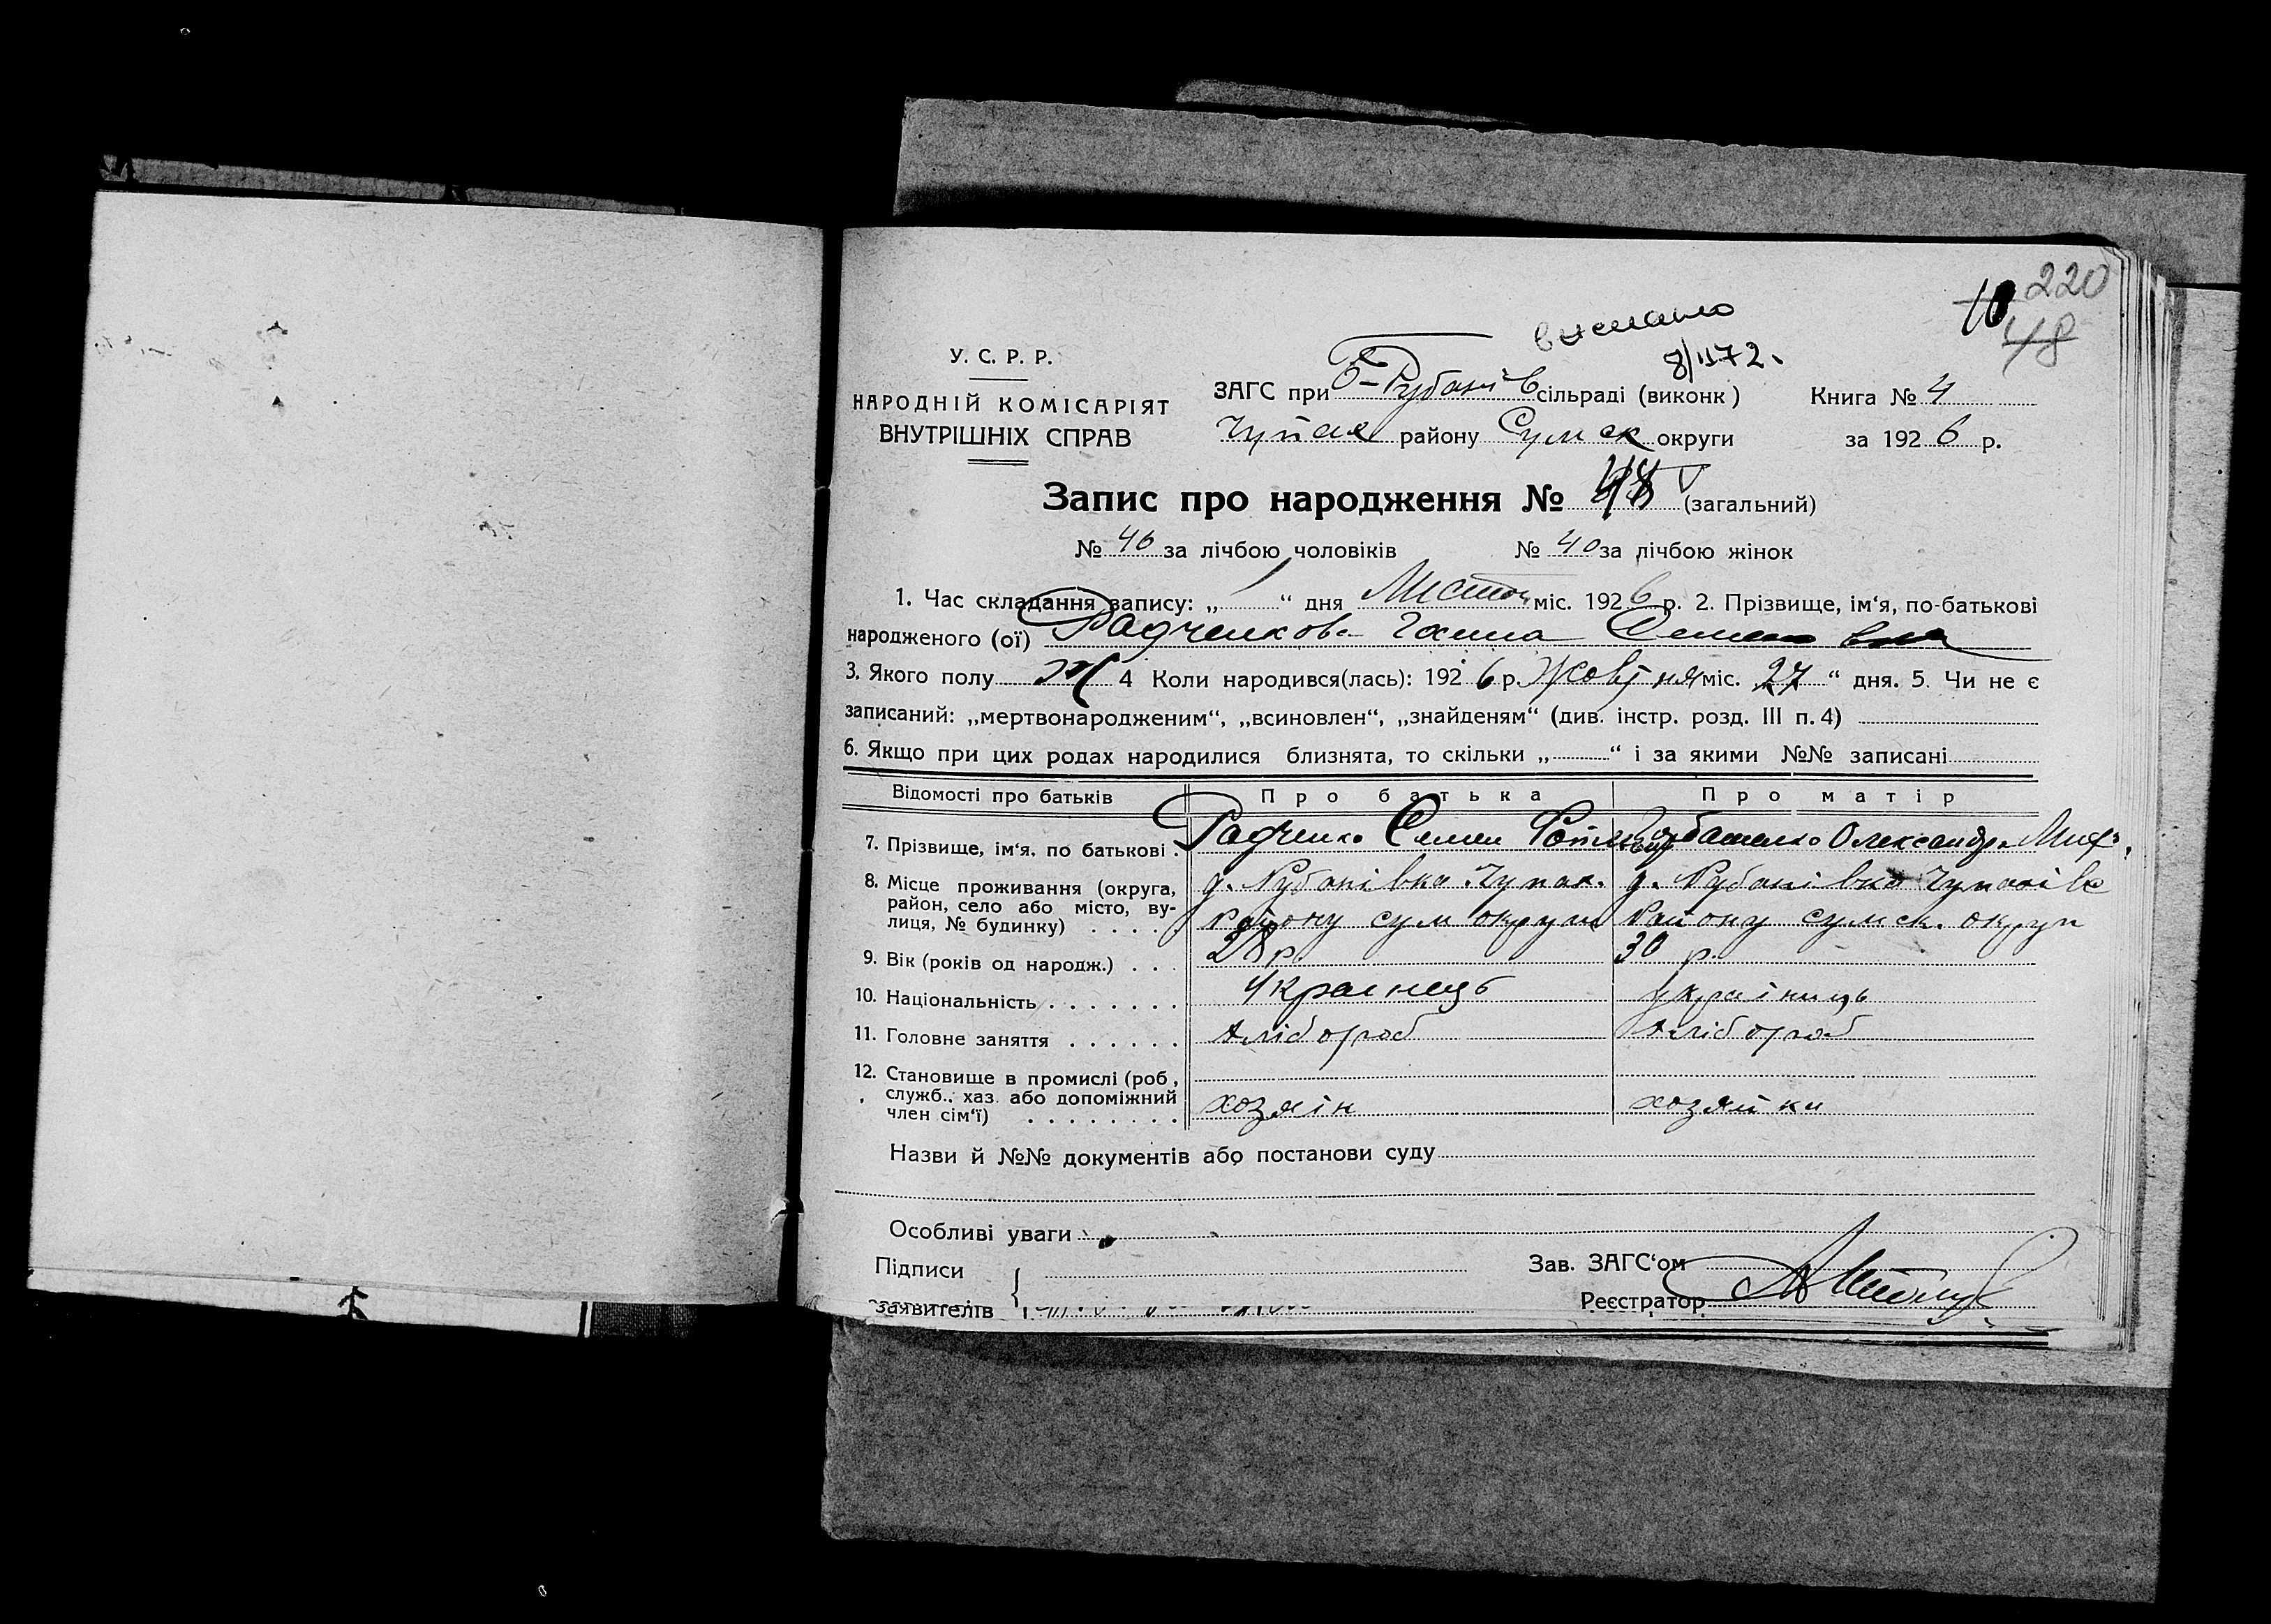 220
10
48
вислано
8/II 72.
У. С. Р. Р.
НАРОДНІЙ КОМІСАРІЯТ
ВНУТРІШНІХ СПРАВ
ЗАГС при Б-Рубанів сільраді (виконк)
Книга № 4
району Сумск округи
за 1926 р.
Запис про народження № (загальний)
№ 46 за лічбою чоловіків № 40 за лічбою жінок
1. Час складання запису: „1“ дня Листоп міс. 1926 р. 2. Прізвище, ім‘я, по-батькові
народженого (ої) Радченкова Ганна Семеновна
3. Якого полу ж 4 Коли народився(лась): 1926 р. Жовтня міс. 27“ дня. 5. Чи не є
записаний: „мертвонародженим“, „всиновлен“, „знайденям“ (див. інстр. розд. III п. 4)
6. Якщо при цих родах народилися близнята, то скільки „ “ і за якими №№ записані
Відомості про батьків Про батька Про матір
7. Прізвище, ім‘я, по батькові . Радченко Семен Олександра Мих.
8. Місце проживання (округа, район, село або місто, вулиця, № будинку) . . . .
д. Рубанівка Чупах. району сум округи
д. Рубанівка Чупахівс району сумск. округи
9. Вік (років од народж.) . . . 28 р 30 р.
10. Національність . . . . . . . Украінець украінець
11. Головне заняття . . . . . . хлібороб хлібороб
12. Становище в промислі (роб, служб., хаз. або допоміжний член сім‘ї) . . . . . . . . хозяін хозяйка
Назви й №№ документів або постанови суду
Особливі уваги
Підписи
заявителів
Зав. ЗАГС‘ом
Реєстратор